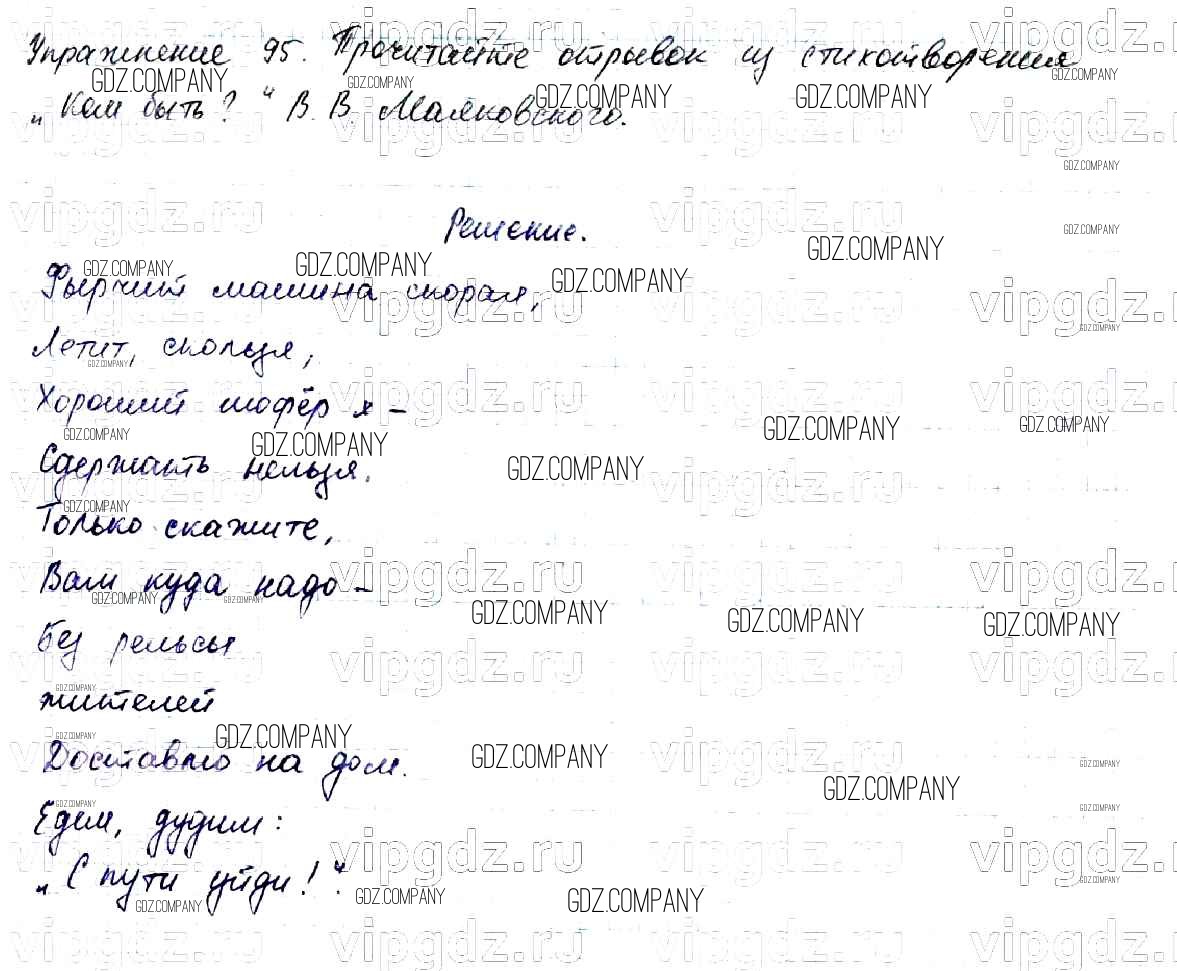 Упражнение 95. Прочитайте отрывок из стихотворения
„Кем быть?“ В. В. Маяковского.
Решение.
Фырчит машина скорая,
Летит, скользя,
Хороший шофёр я –
Сдержать нельзя.
Только скажите,
Вам куда надо –
Без рельсы
жителей
Доставлю на дом.
Едем, дудим:
„С пути уйди!“.